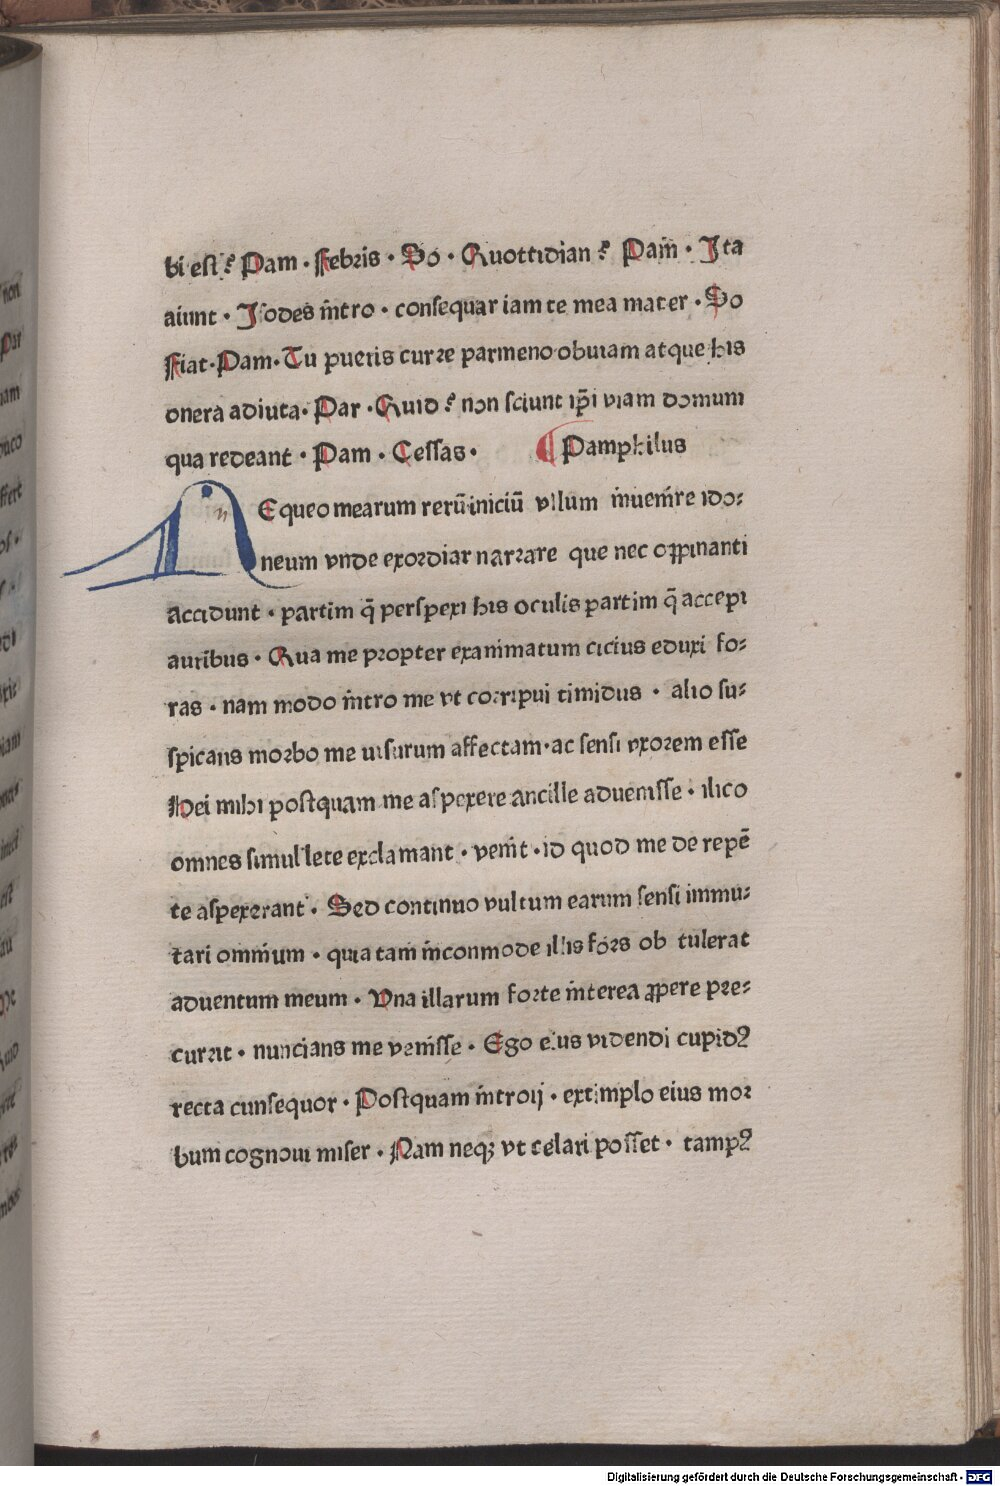 bi est? Pam · Febris · So · Quottidian? Pam̄ · Ita
aiunt · I sodes m̄tro · consequar iam te mea mater · So
Fiat · Pam · Tu pueris curre parmeno obuiam atque his
onera adiuta · Par · Quid? non sciunt ip̄i viam domum
qua redeant · Pam · Cessas · Pamphilus
N Equeo mearum rerū iniciū vllum m̄uem̄re ido:
neum vnde exordiar narrare que nec oppinanti
accidunt · partim q̄ perspexi his oculis partim q̄ accepi
auribus · Qua me propter exanimatum cicius eduxi fo:
ras · nam modo m̄tro me vt corripui timidus · alio su:
spicans morbo me uisurum affectam · ac sensi vxorem esse
Hei mihi postquam me aspexere ancille aduenisse · ilico
omnes simul lete exclamant · vem̄t · id quod me de repē
te aspexerant · Sed continuo vultum earum sensi immu:
tari omm̄um · quia tam m̄conmode illis fors ob tulerat
aduentum meum · Vna illarum forte m̄terea ꝓpere pre:
currit · nuncians me vem̄sse · Ego eius videndi cupidꝰ
recta cunsequor · Postquam m̄troij · extimplo eius mor
bum cognoui miser · Nam neqꝫ vt celari posset · tampꝰ
non
Digitalisierung gefördert durch die Deutsche Forschungsgemeinschaft · DFG